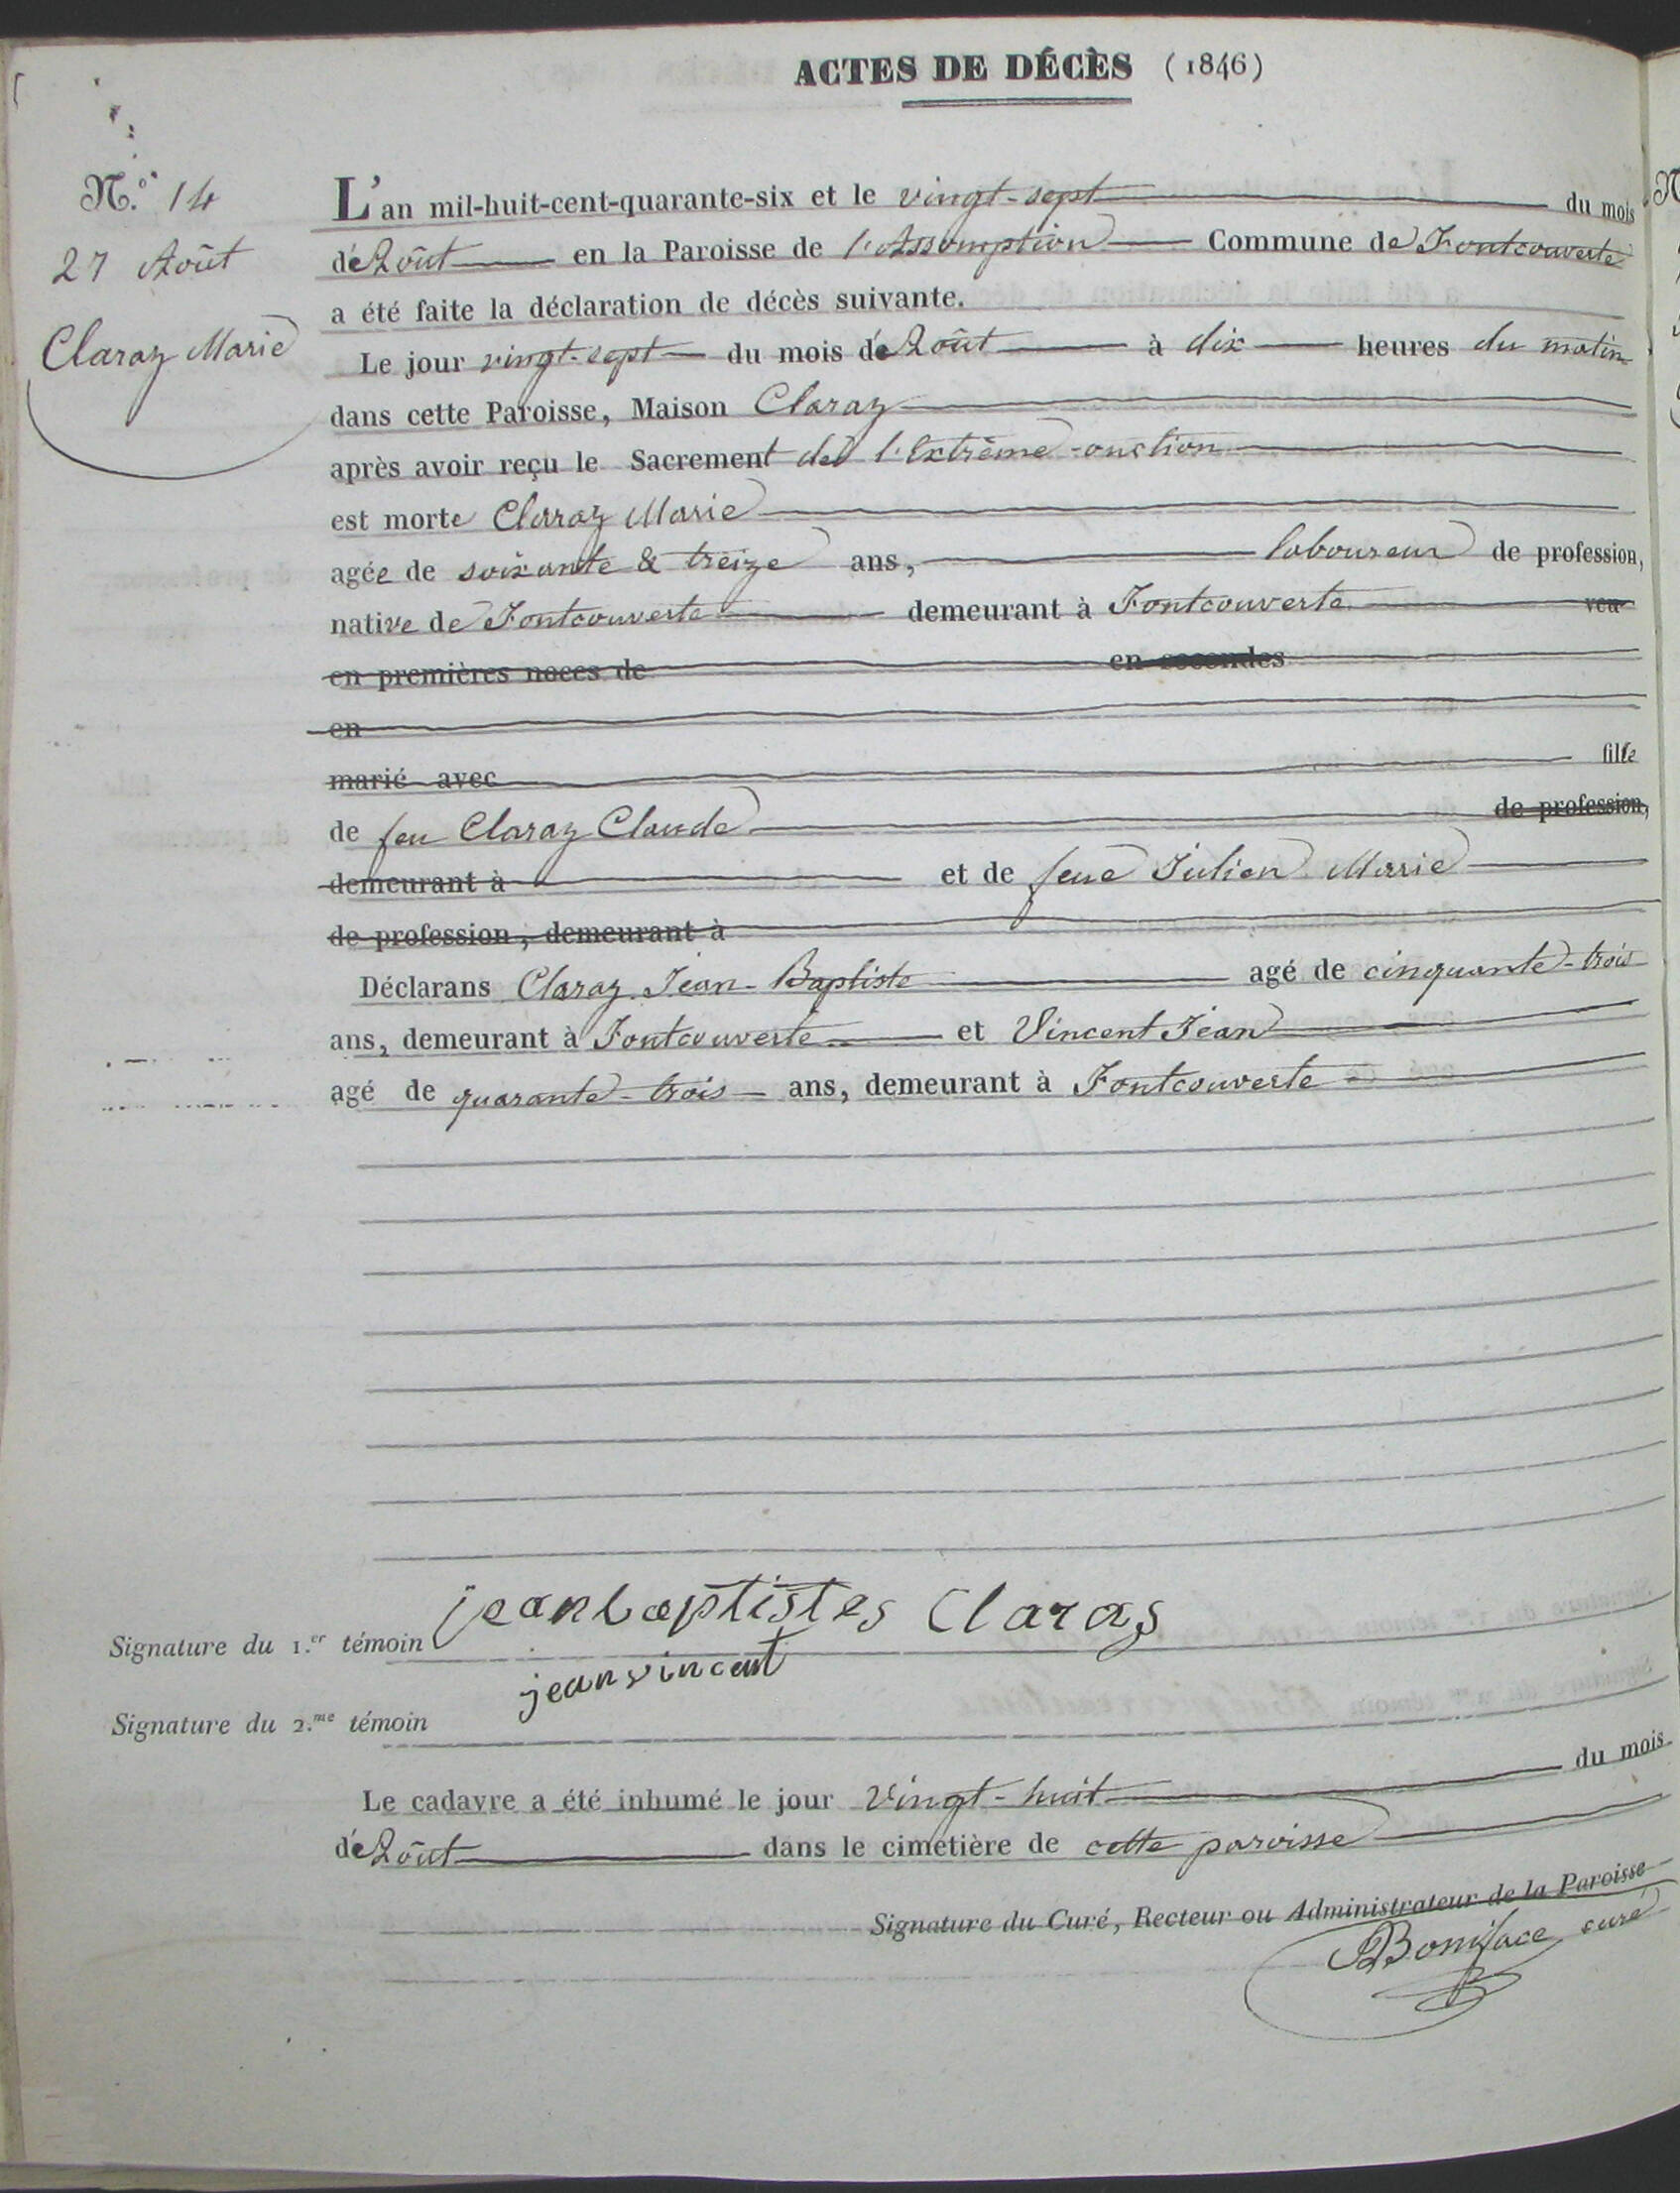 ACTES DE DÉCÈS (1846)
N.º 14
27 Août
Claraz Marie
L'an mil-huit-cent-quarante-six et le vingt-sept du mois
d'Août en la Paroisse de l'Assomption Commune de Fontcouverte
a été faite la déclaration de décès suivante.
Le jour vingt-sept du mois d'Août à dix heures du matin
dans cette Paroisse, Maison Claraz
après avoir reçu le Sacrement de l'Extrême-onction
est morte Claraz Marie
agée de soixante & treize ans, laboureur de profession,
native de Fontcouverte demeurant à Fontcouverte veu
en premières noces de en secondes
en
marié avec fille
de feu Claraz Claude de profession,
demeurant à et de feue Julien Marie
de profession, demeurant à
Déclarans Claraz Jean-Baptiste agé de cinquante-trois
ans, demeurant à Fontcouverte et Vincent Jean
agé de quarante-trois ans, demeurant à Fontcouverte
jeanbaptistes Claras
Signature du 1.er témoin
jean vincent
Signature du 2.me témoin
Le cadavre a été inhumé le jour vingt-huit du mois
d'Août dans le cimetière de cette paroisse
Signature du Curé, Recteur ou Administrateur de la Paroisse
Boniface curé